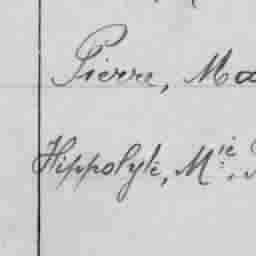 Pierre, Ma
Hippolyte, Mie.